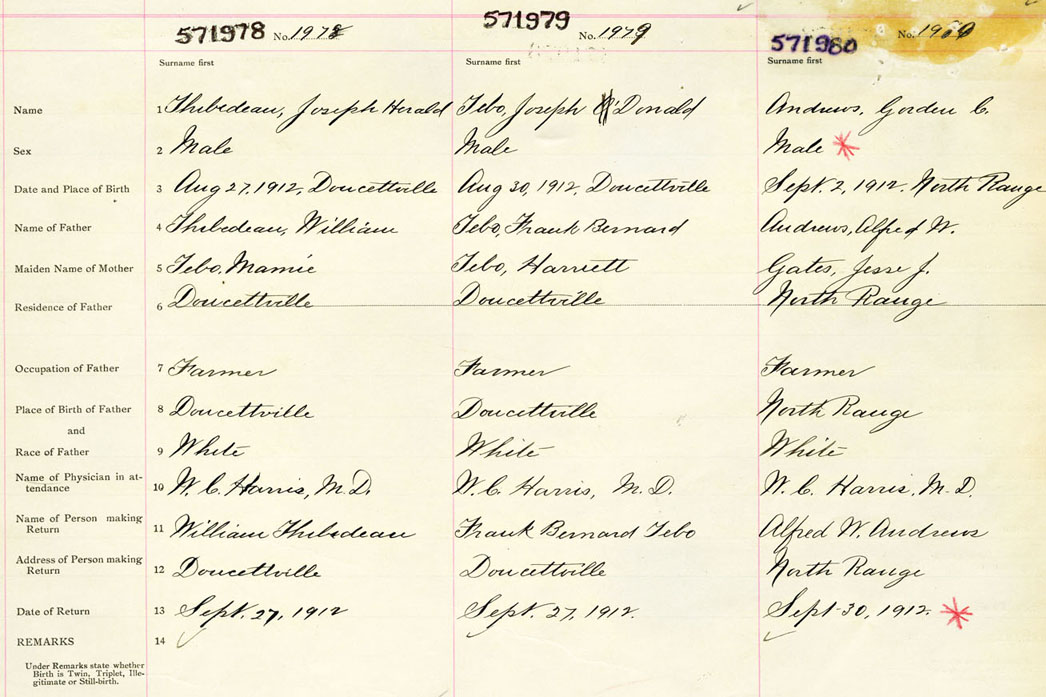 571978 No. 1978 571979 No. 1979 571980 No. 1980
Surname first Surname first Surname first
Name 1 Thibedeau, Joseph Herald Tebo, Joseph O'Donald Andrews, Gorden C.
Sex 2 Male Male Male
Date and Place of Birth 3 Aug 27, 1912, Doucettville Aug 30, 1912, Doucettville Sept. 2, 1912. North Range
Name of Father 4 Thibedeau, William Tebo, Frank Bernard Andrews, Alfred W.
Maiden Name of Mother 5 Tebo, Mamie Tebo, Harriett Gates, Jesse J.
Residence of Father 6 Doucettville Doucettville North Range
Occupation of Father 7 Farmer Farmer Farmer
Place of Birth of Father 8 Doucettville Doucettville North Range
and
Race of Father 9 White White White
Name of Physician in at-
tendance 10 W. C. Harris, M.D. W. C. Harris, M.D. W. C. Harris, M.D.
Name of Person making
Return 11 William Thibedeau Frank Bernard Tebo Alfred W. Andrews
Address of Person making
Return 12 Doucettville Doucettville North Range
Date of Return 13 Sept. 27, 1912 Sept. 27, 1912. Sept-30, 1912.
REMARKS 14
Under Remarks state whether
Birth is Twin, Triplet, Ille-
gitimate or Still-birth.